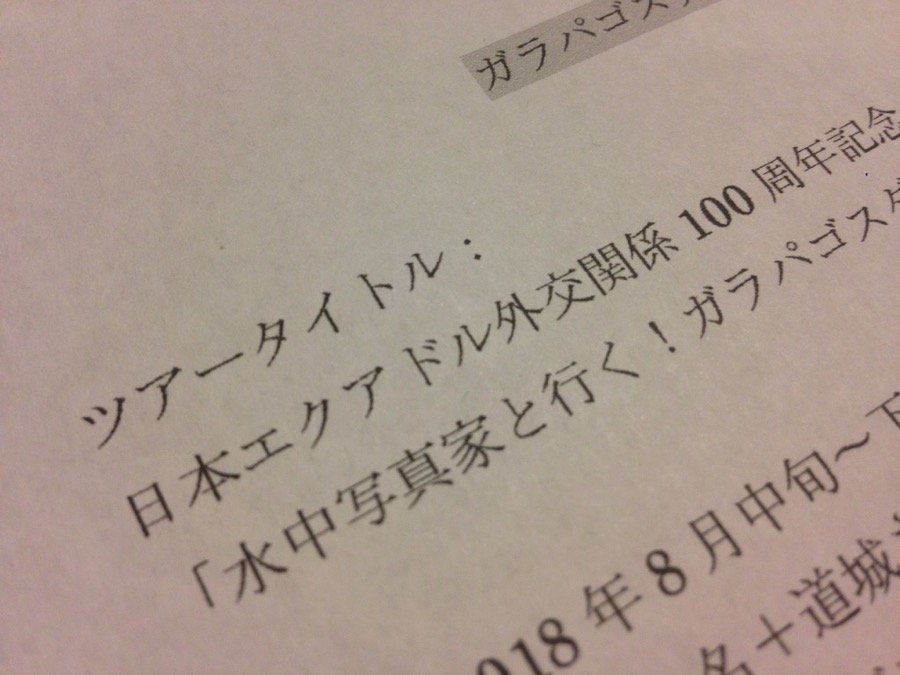 ガラパゴス
ツアータイトル：
日本エクアドル外交関係 100 周年記念
「水中写真家と行く！ガラパゴスダ
018 年 8 月中旬～下
名＋道城